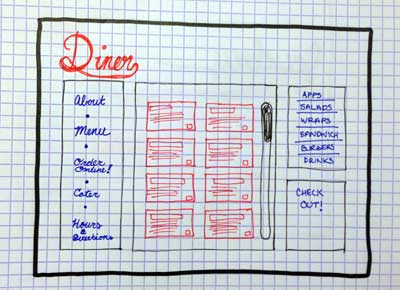 Diner
About
Menu
Order
Online!
Cater
Hours
&
Directions
APPS
SALADS
WRAPS
SANDWICH
BURGERS
DRINKS
CHECK
OUT!